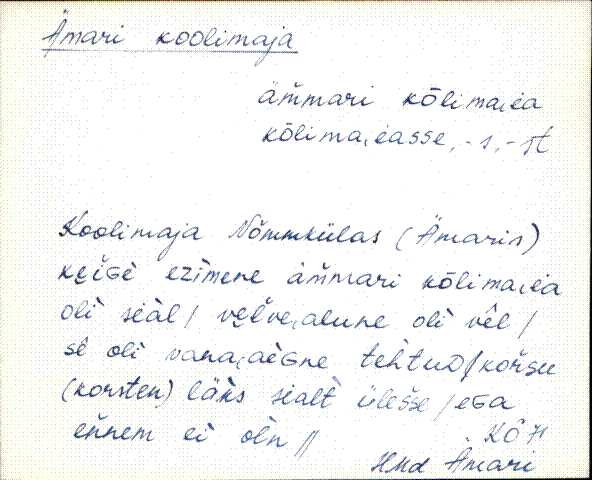 Ämari koolimaja
äm̆mari kōlima͜ia
kōlima͜iasse, -s, -st
Koolimaja Nõmmkülas (Ämaris)
kei̬Ge ezimene äm̆mari kōlima͜ia
oli sial / alune oli vēl /
sē oli tehtuD / korsu
(korsten) läks sialt ülesse / eGa
en̆nem ei oln //
KÕ 71
HMd Ämari